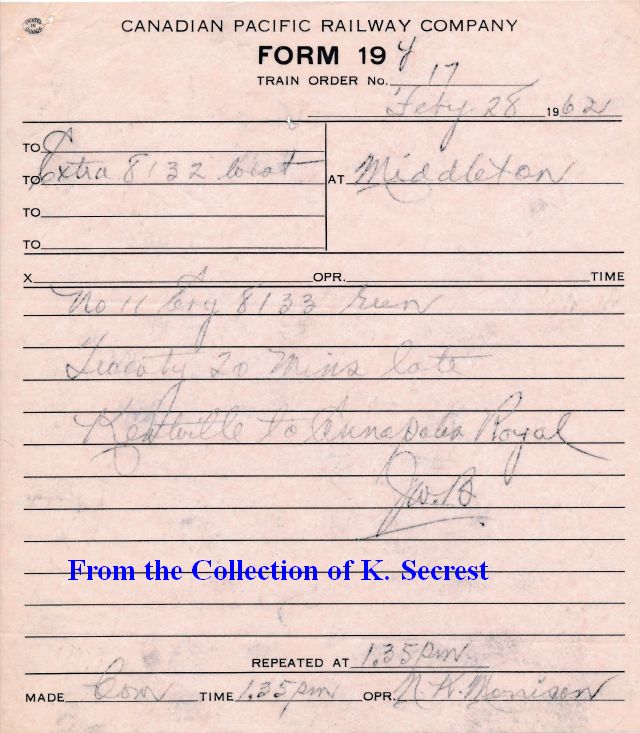 CANADIAN PACIFIC RAILWAY COMPANY
FORM 19 Y
TRAIN ORDER No. 17
Feby 28 1962
TO C
TO Extra 8132 West
AT Middleton
TO
TO
X OPR. TIME
No 11 Eng 8133 run
Twenty 20 Mins late
Kentville to Annapolis Royal
JW.B
From the Collection of K. Secrest
REPEATED AT 1.35 pm
MADE Com TIME 1.35 pm OPR. N. K. Morrison